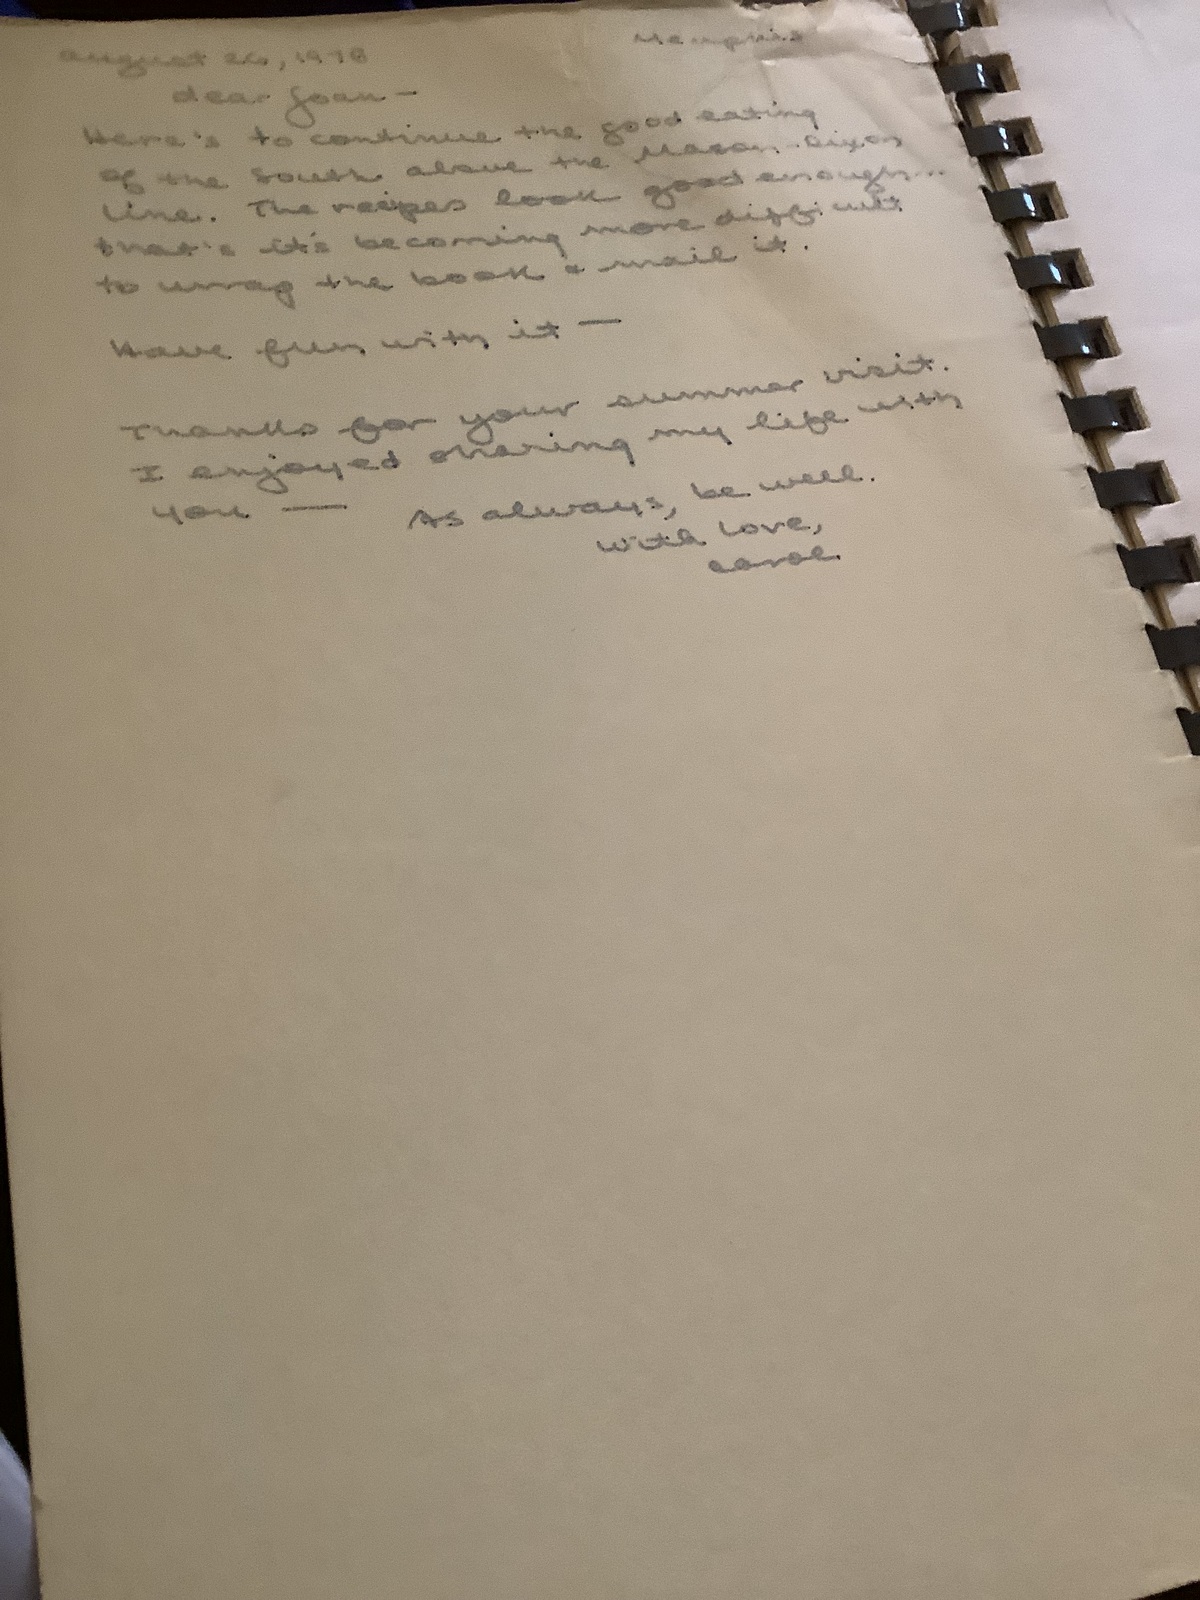 august 26, 1978 Memphis
dear Joan —
Here's to continue the good eating
of the South above the Mason-Dixon
Line. The recipes look good enough...
that's it's becoming more difficult
to wrap the book & mail it.
Have fun with it —
Thanks for your summer visit.
I enjoyed sharing my life with
you — As always, be well.
With love,
carol.